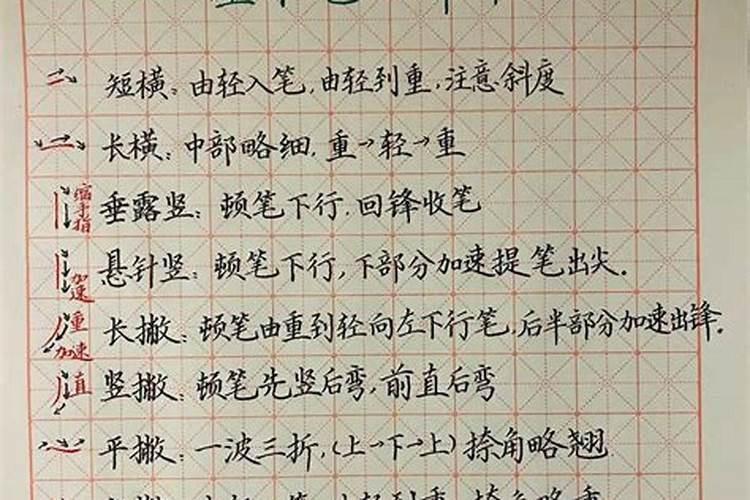 短横：由轻入笔，由轻到重，注意斜度
长横：中部略细，重→轻→重
缩手指
垂露竖：顿笔下行，回锋收笔
加速
悬针竖：顿笔下行，下部分加速提笔出尖．
重
加速
长撇：顿笔由重到轻向左下行笔，后半部分加速出锋．
直
竖撇：顿笔先竖后弯，前直后弯
平撇：一波三折，（上→下→上）捺角略翘